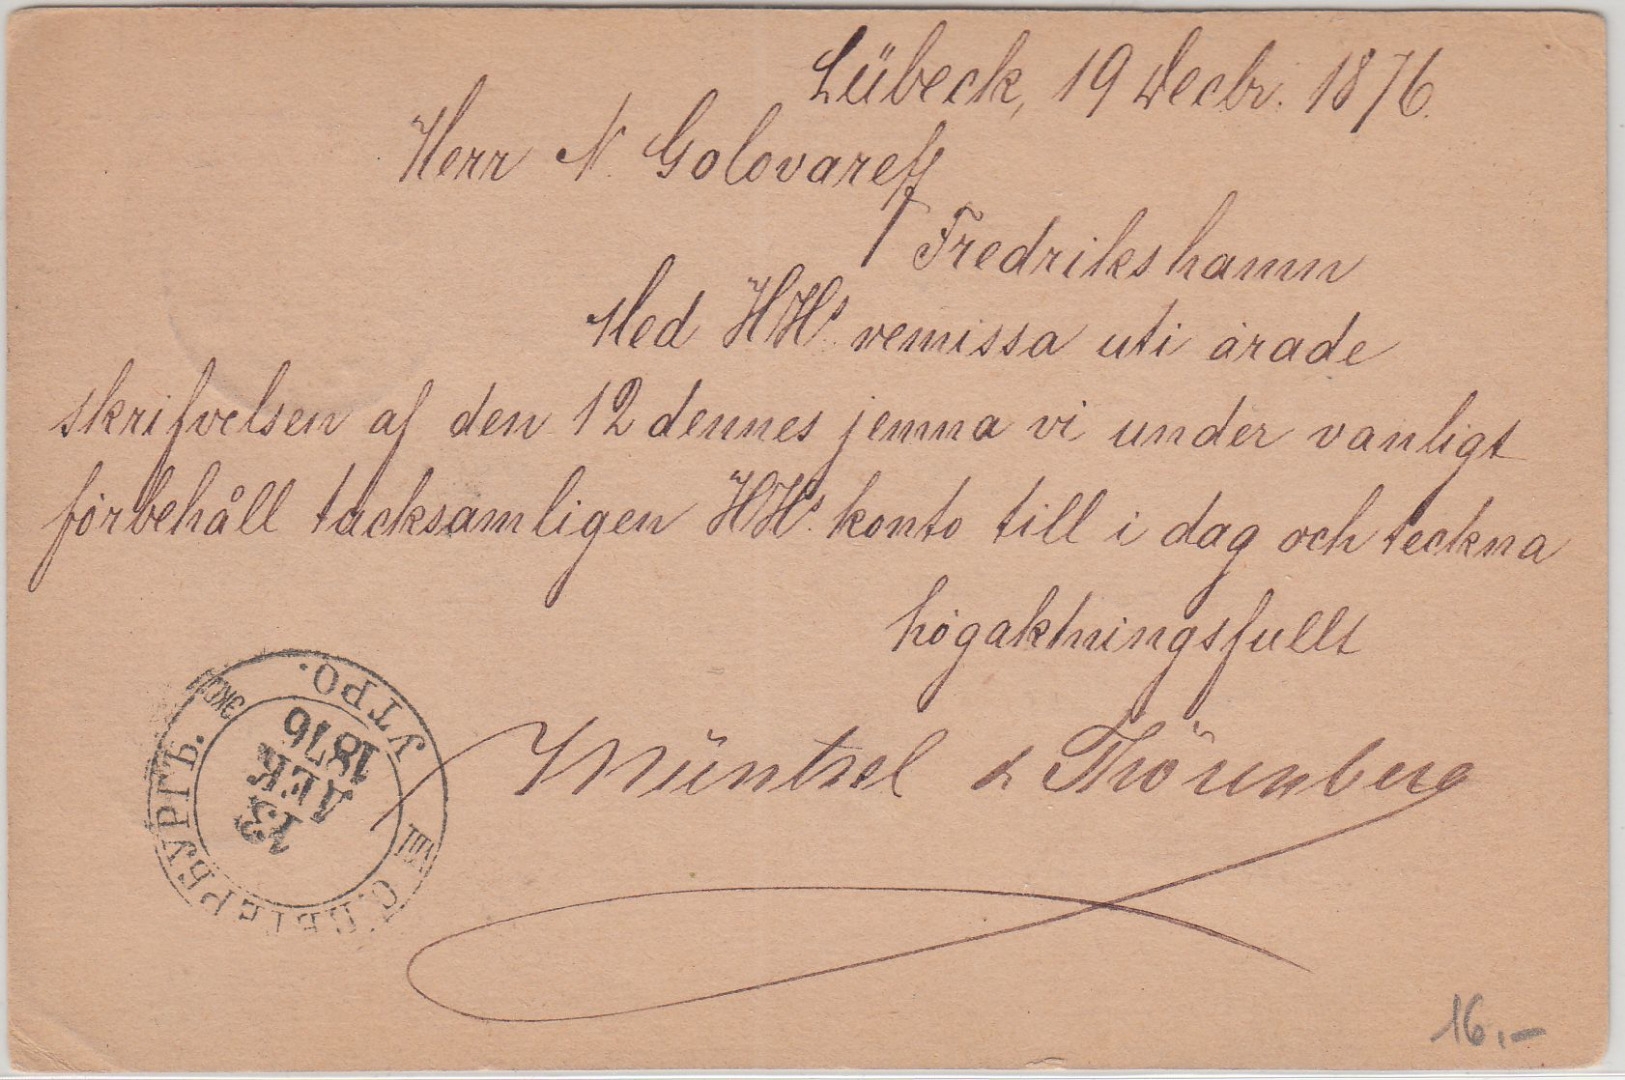 Lübeck, 19 Decbr. 1876.
Herr N. Golovareff
Fredrikshamn
Med HHs. remissa uti ärade
skrifvelsen af den 12 dennes jemna vi under vanligt
förbehåll tacksamligen HHs. konto till i dag och teckna
högaktningsfullt
Müntzel & Thörnberg
С. ПЕТЕРБУРГЪ.
УТРО.
VIII
ЭКСП.
13
ДЕК
1876
16.-